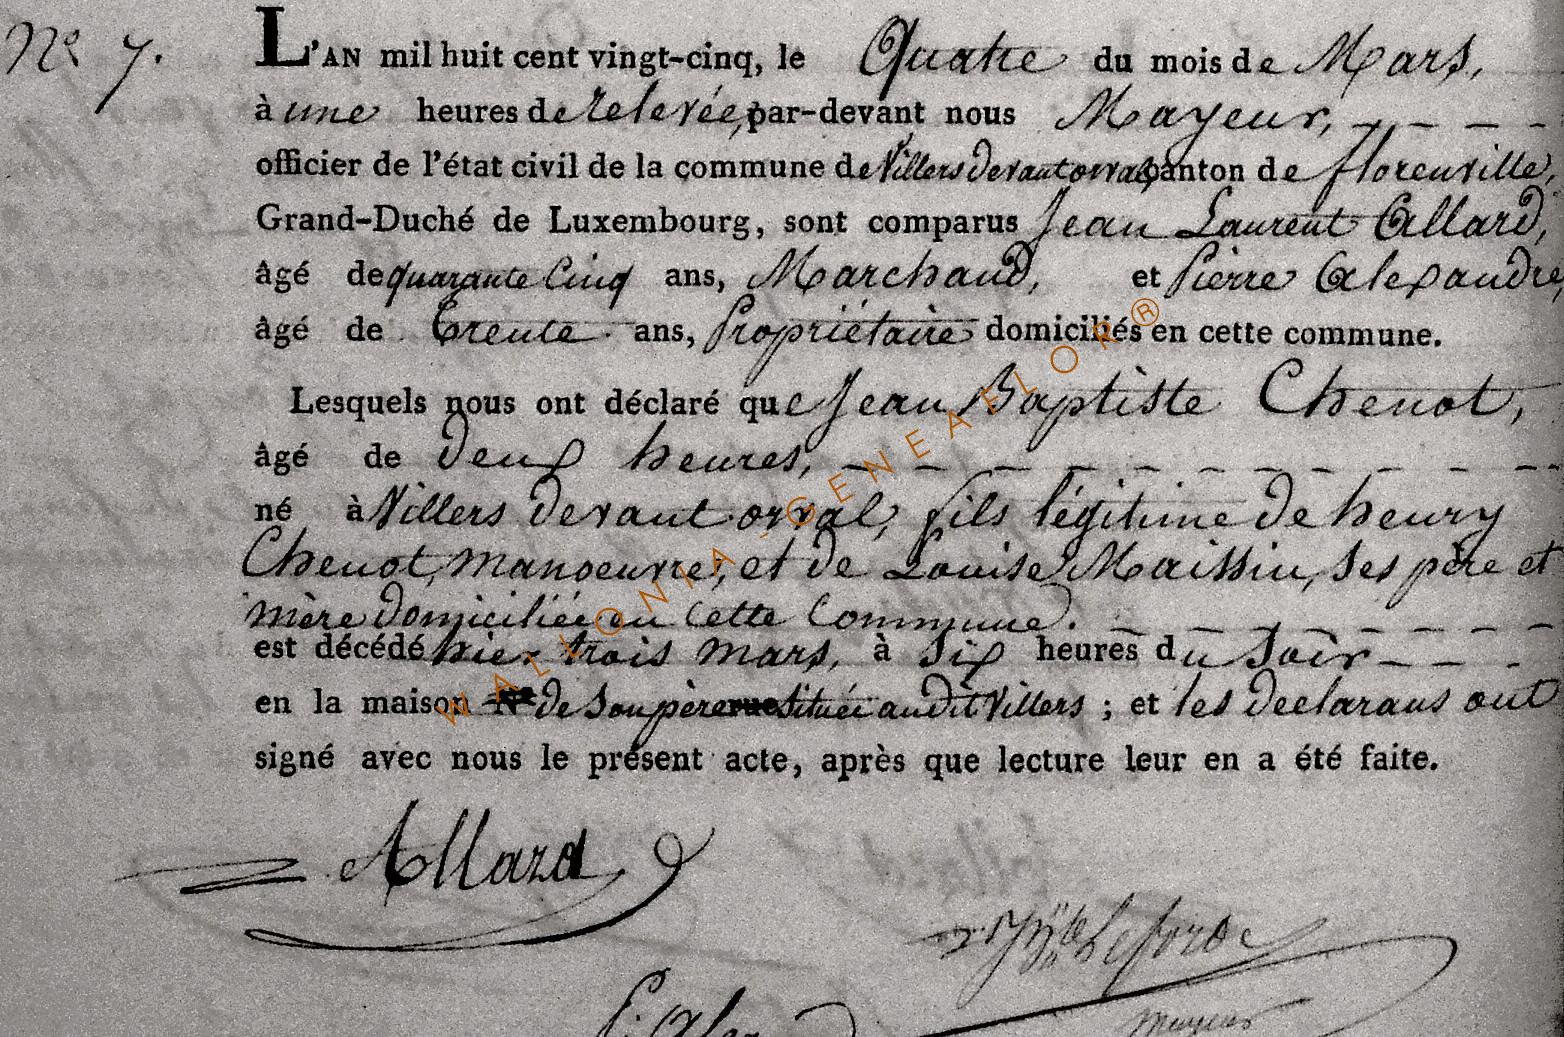 Nº 7.
L'AN mil huit cent vingt-cinq, le Quatre du mois de Mars,
à une heures de relevée, par-devant nous Mayeur,
officier de l'état civil de la commune de Villers devant orval, canton de florenville,
Grand-Duché de Luxembourg, sont comparus Jean Laurent Allard,
âgé de quarante Cinq ans, Marchand, et Pierre Alexandre,
âgé de Trente ans, Propriétaire domiciliés en cette commune.
Lesquels nous ont déclaré que Jean Baptiste Chenot,
âgé de deux heures,
né à Villers devant orval, fils légitime de henry
Chenot, manoeuvre, et de Louise Maissin, ses père et
mère domiciliée en cette Commune.
est décédé hier trois mars, à six heures du soir
en la maison Nº de son père rue située audit Villers ; et les declarans ont
signé avec nous le présent acte, après que lecture leur en a été faite.
Allard
mayeur
WALLONIA-GENEAFLOR®